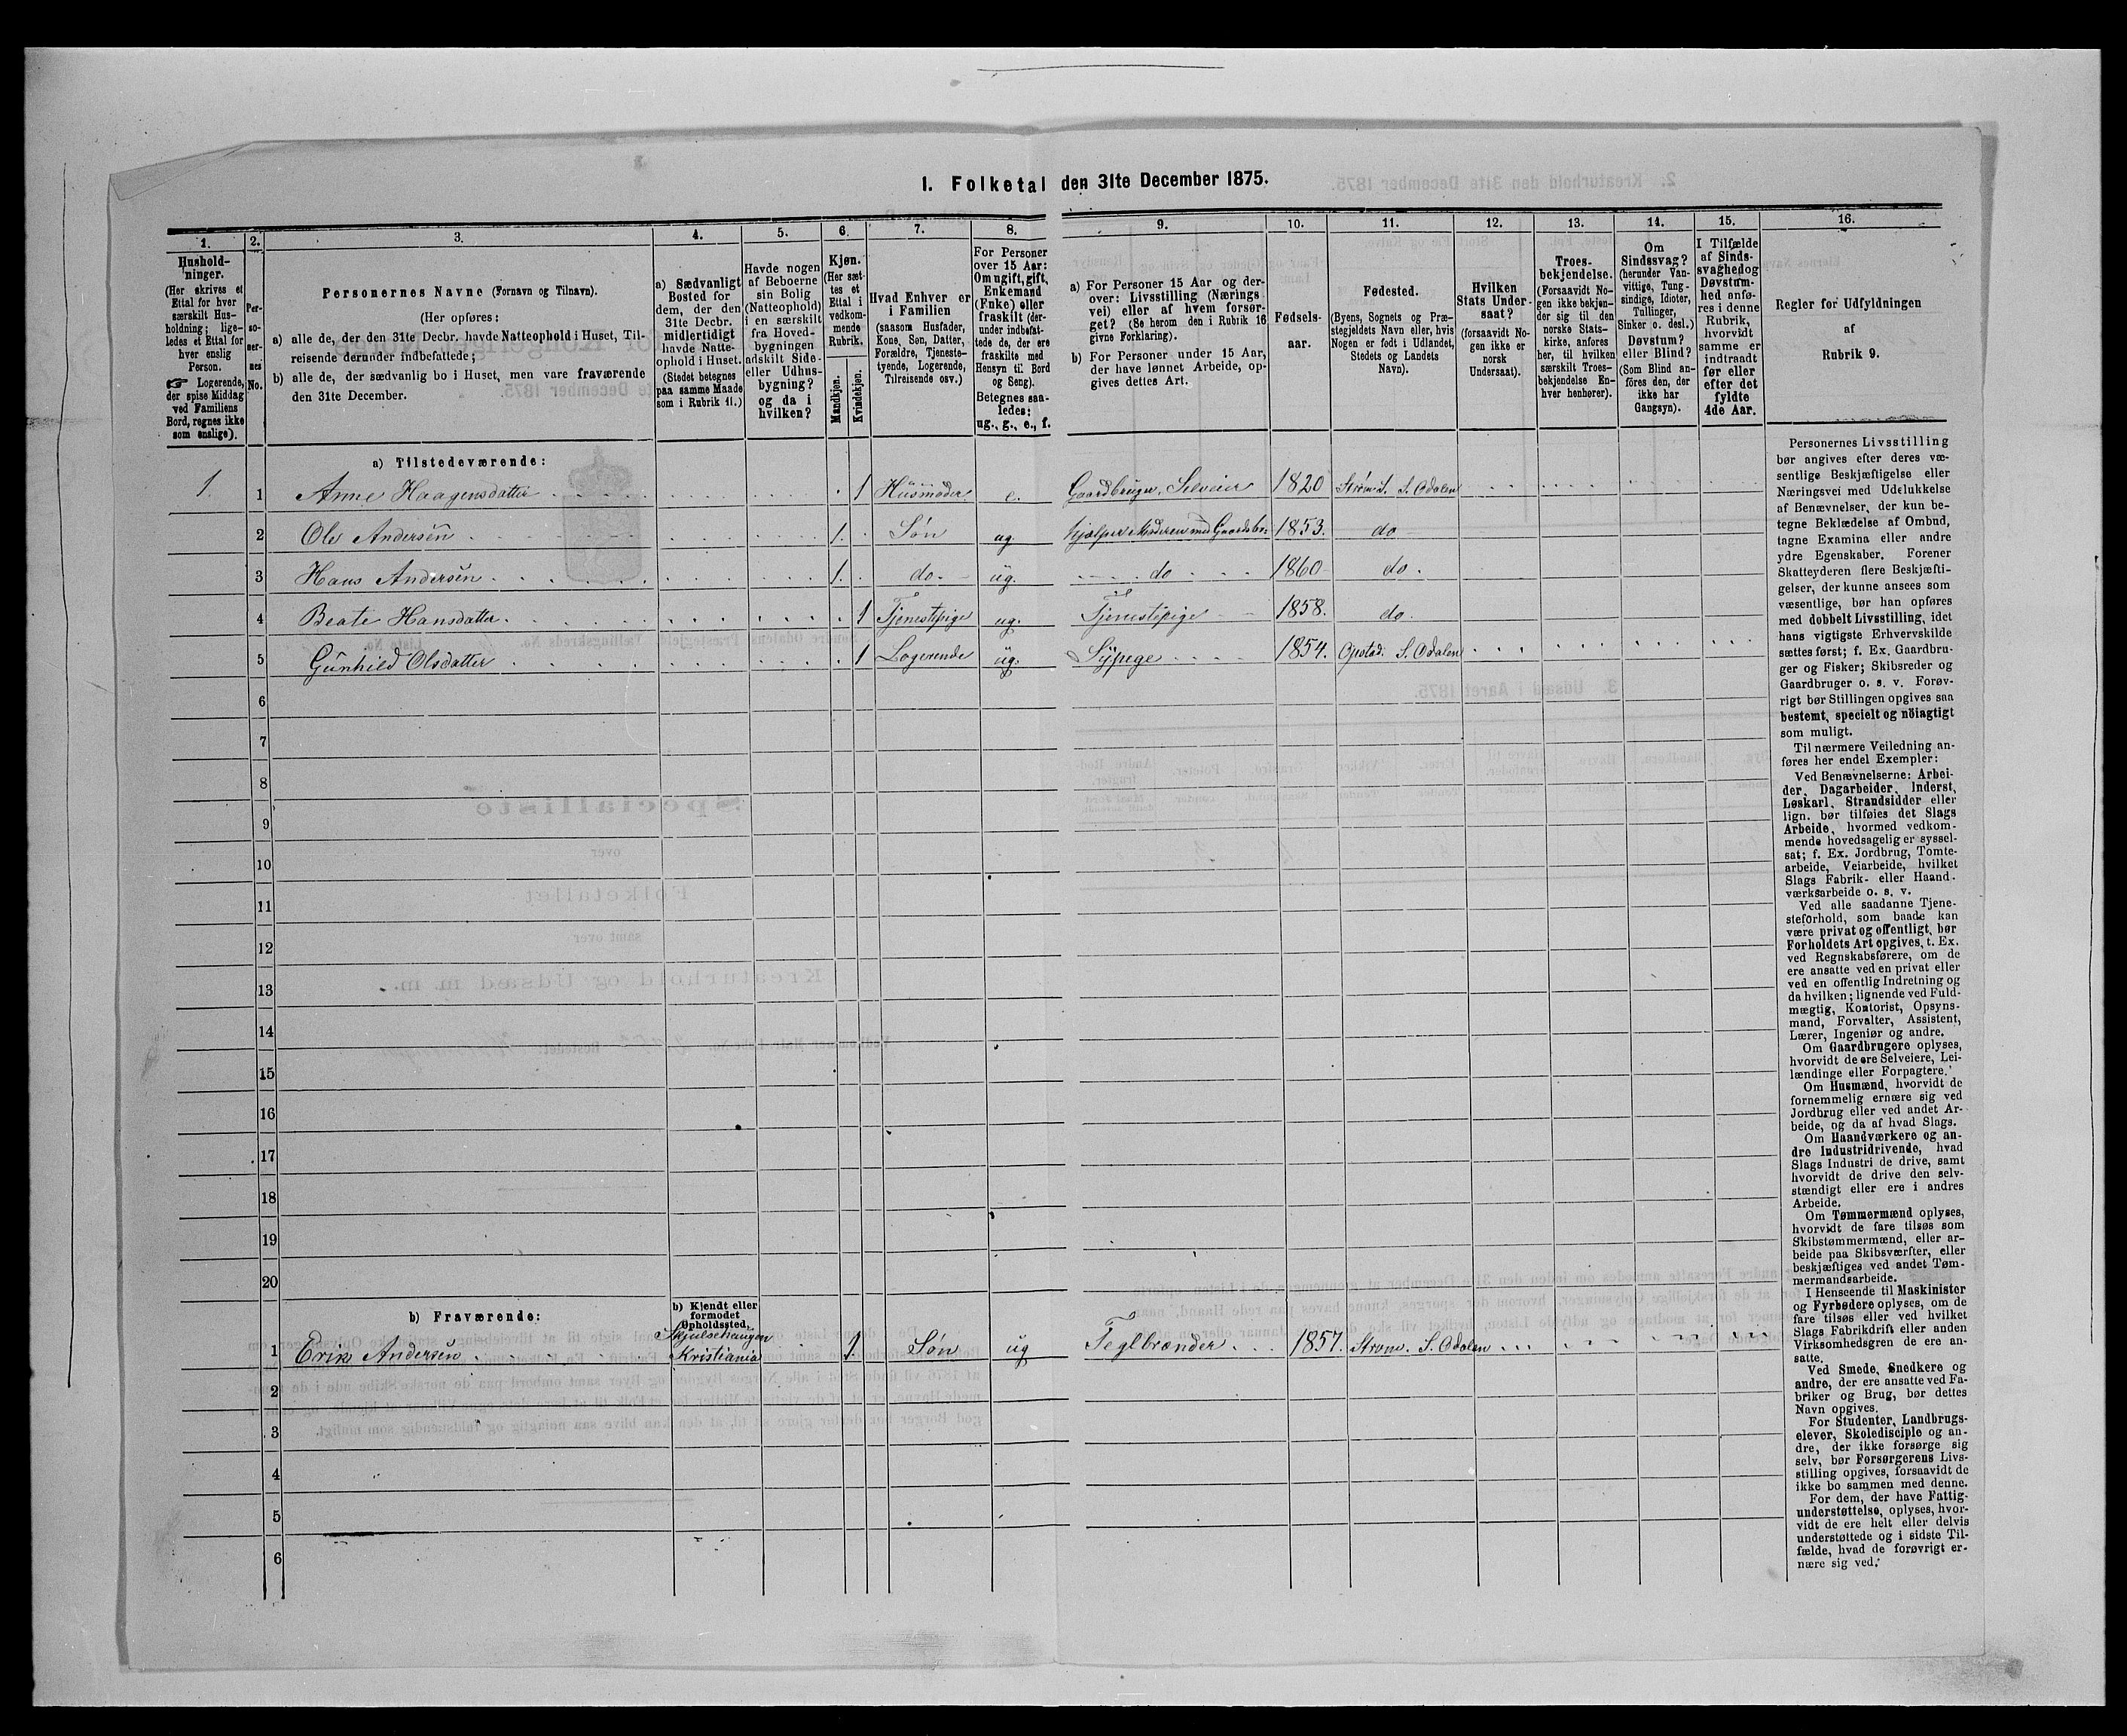 1. Folketal den 31te December 1875.
1.
Hushold-
ninger.
(Her skrives et
Ettal for hver
særskilt Hus-
holdning; lige-
ledes et Ettal for
hver enslig
Person.
☞ Logerende,
der spise Middag
ved Familiens
Bord, regnes ikke
som enslige).
2.
Per-
so-
ner-
nes
No.
3.
Personernes Navne (Fornavn og Tilnavn).
(Her opføres:
a) alle de, der den 31te Decbr. havde Natteophold i Huset, Til-
reisende derunder indbefattede;
b) alle de, der sædvanlig bo i Huset, men vare fraværende
den 31te December.
4.
a) Sædvanligt
Bosted for
dem, der den
31te Decbr.
midlertidigt
havde Natte-
ophold i Huset.
(Stedet betegnes
paa samme Maade
som i Rubrik 11.)
5.
Havde nogen
af Beboerne
sin Bolig
(Natteophold)
i en særskilt
fra Hoved-
bygningen
adskilt Side-
eller Udhus-
bygning?
og da i
hvilken?
6.
Kjøn.
(Her sæt-
tes et
Ettal i
vedkom-
mende
Rubrik.
Mandkjøn.
Kvindekjøn.
7.
Hvad Enhver er
i Familien
(saasom Husfader,
Kone, Søn, Datter,
Forældre, Tjeneste-
tyende, Logerende,
Tilreisende osv.)
8.
For Personer
over 15 Aar:
Om ugift, gift,
Enkemand
(Enke) eller
fraskilt (der-
under indbefat-
tede de, der ere
fraskilte med
Hensyn til Bord
og Seng).
Betegnes saa-
ledes:
ug., g., e., f.
9.
a) For Personer 15 Aar og der-
over: Livsstilling (Nærings
vei) eller af hvem forsør-
get? (Se herom den i Rubrik 16
givne Forklaring).
b) For Personer under 15 Aar,
der have lønnet Arbeide, op-
gives dettes Art.
10.
Fødsels-
aar.
11.
Fødested.
(Byens, Sognets og Præ-
stegjeldets Navn eller, hvis
Nogen er født i Udlandet,
Stedets og Landets
Navn).
12.
Hvilken
Stats Under-
saat?
(forsaavidt No-
gen ikke er
norsk
Undersaat).
13.
Troes-
bekjendelse.
(Forsaavidt No-
gen ikke bekjen-
der sig til den
norske Stats-
kirke, anføres
her, til hvilken
særskilt Troes-
bekjendelse En-
hver henhører).
14.
Om
Sindssvag?
(herunder Van-
vittige, Tung-
sindige, Idioter,
Tullinger,
Sinker o. desl.)
Døvstum?
eller Blind?
(Som Blind an-
føres den, der
ikke har
Gangsyn).
15.
I Tilfælde
af Sinds-
svaghed og
Døvstum-
hed anfø-
res i denne
Rubrik,
hvorvidt
samme er
indtraadt
før eller
efter det
fyldte
4de Aar.
16.
Regler for Udfyldningen
af
Rubrik 9.
a) Tilstedeværende:
1 1 Anne Haagensdatter 1 Husmoder e. Gaardbruger, Selveier 1820 Strøm S. S. Odalen
2 Ole Andersen 1. Søn ug. hjælper Moderen med Gaardsbr. 1853. do
3 Hans Andersen 1. do. ug. do 1860 do.
4 Beate Hansdatter 1 Tjenestepige ug. Tjenestepige 1858. do.
5 Gunhild Olsdatter 1 Logerende ug. Sypege 1854. Opstad. S. Odalen
6
7
8
9
10
11
12
13
14
15
16
17
18
19
20
b) Fraværende:
b) Kjendt eller
formodet
Opholdssted.
Skjulsehaugen
1 Erik Andersen Kristiania 1 Søn ug Teglbrænder 1857. Strøm. S. Odalen
2
3
4
5
6
Personernes Livsstilling
bør angives efter deres væ-
sentlige Beskjæftigelse eller
Næringsvei med Udelukkelse
af Benævnelser, der kun be-
tegne Beklædelse af Ombud,
tagne Examina eller andre
ydre Egenskaber. Forener
Skatteyderen flere Beskjæfti-
gelser, der kunne ansees som
væsentlige, bør han opføres
med dobbelt Livsstilling, idet
hans vigtigste Erhvervskilde
sættes først; f. Ex. Gaardbru-
ger og Fisker; Skibsreder og
Gaardbruger o. s. v. Forøv-
rigt bør Stillingen opgives saa
bestemt, specielt og nöiagtigt
som muligt.
Til nærmere Veiledning an-
føres her endel Exempler:
Ved Benævnelserne: Arbei-
der, Dagarbeider, Inderst,
Løskarl, Strandsidder eller
lign. bør tilføies det Slags
Arbeide, hvormed vedkom-
mende hovedsagelig er syssel-
sat; f. Ex. Jordbrug, Tomte-
arbeide, Veiarbeide, hvilket
Slags Fabrik- eller Haand-
værksarbeide o. s. v.
Ved alle saadanne Tjene-
steforhold, som baade kan
være privat og offentligt, bør
Forholdets Art opgives, t. Ex.
ved Regnskabsførere, om de
ere ansatte ved en privat eller
ved en offentlig Indretning og
da hvilken; lignende ved Fuld-
mægtig, Kontorist, Opsyns-
mand, Forvalter, Assistent,
Lærer, Ingeniør og andre.
Om Gaardbrugere oplyses,
hvorvidt de ere Selveiere, Lei-
lændinge eller Forpagtere.
Om Husmænd, hvorvidt de
fornemmelig ernære sig ved
Jordbrug eller ved andet Ar-
beide, og da af hvad Slags.
Om Haandværkere og an-
dre Industridrivende, hvad
Slags Industri de drive, samt
hvorvidt de drive den selv-
stændigt eller ere i andres
Arbeide.
Om Tømmermænd oplyses,
hvorvidt de fare tilsøs som
Skibstømmermænd, eller ar-
beide paa Skibsværfter, eller
beskjæftiges ved andet Tøm-
mermandsarbeide.
I Henseende til Maskinister
og Fyrbødere oplyses, om de
fare tilsøs eller ved hvilket
Slags Fabrikdrift eller anden
Virksomhedsgren de ere an-
satte.
Ved Smede, Snedkere og
andre, der ere ansatte ved Fa-
briker og Brug, bør dettes
Navn opgives.
For Studenter, Landbrugs-
elever, Skoledisciple og an-
dre, der ikke forsørge sig
selv, bør Forsørgerens Livs-
stilling opgives, forsaavidt de
ikke bo sammen med denne.
For dem, der have Fattig-
understøttelse, oplyses, hvor-
vidt de ere helt eller delvis
understøttede og i sidste Til-
fælde, hvad de forøvrigt er-
nære sig ved.